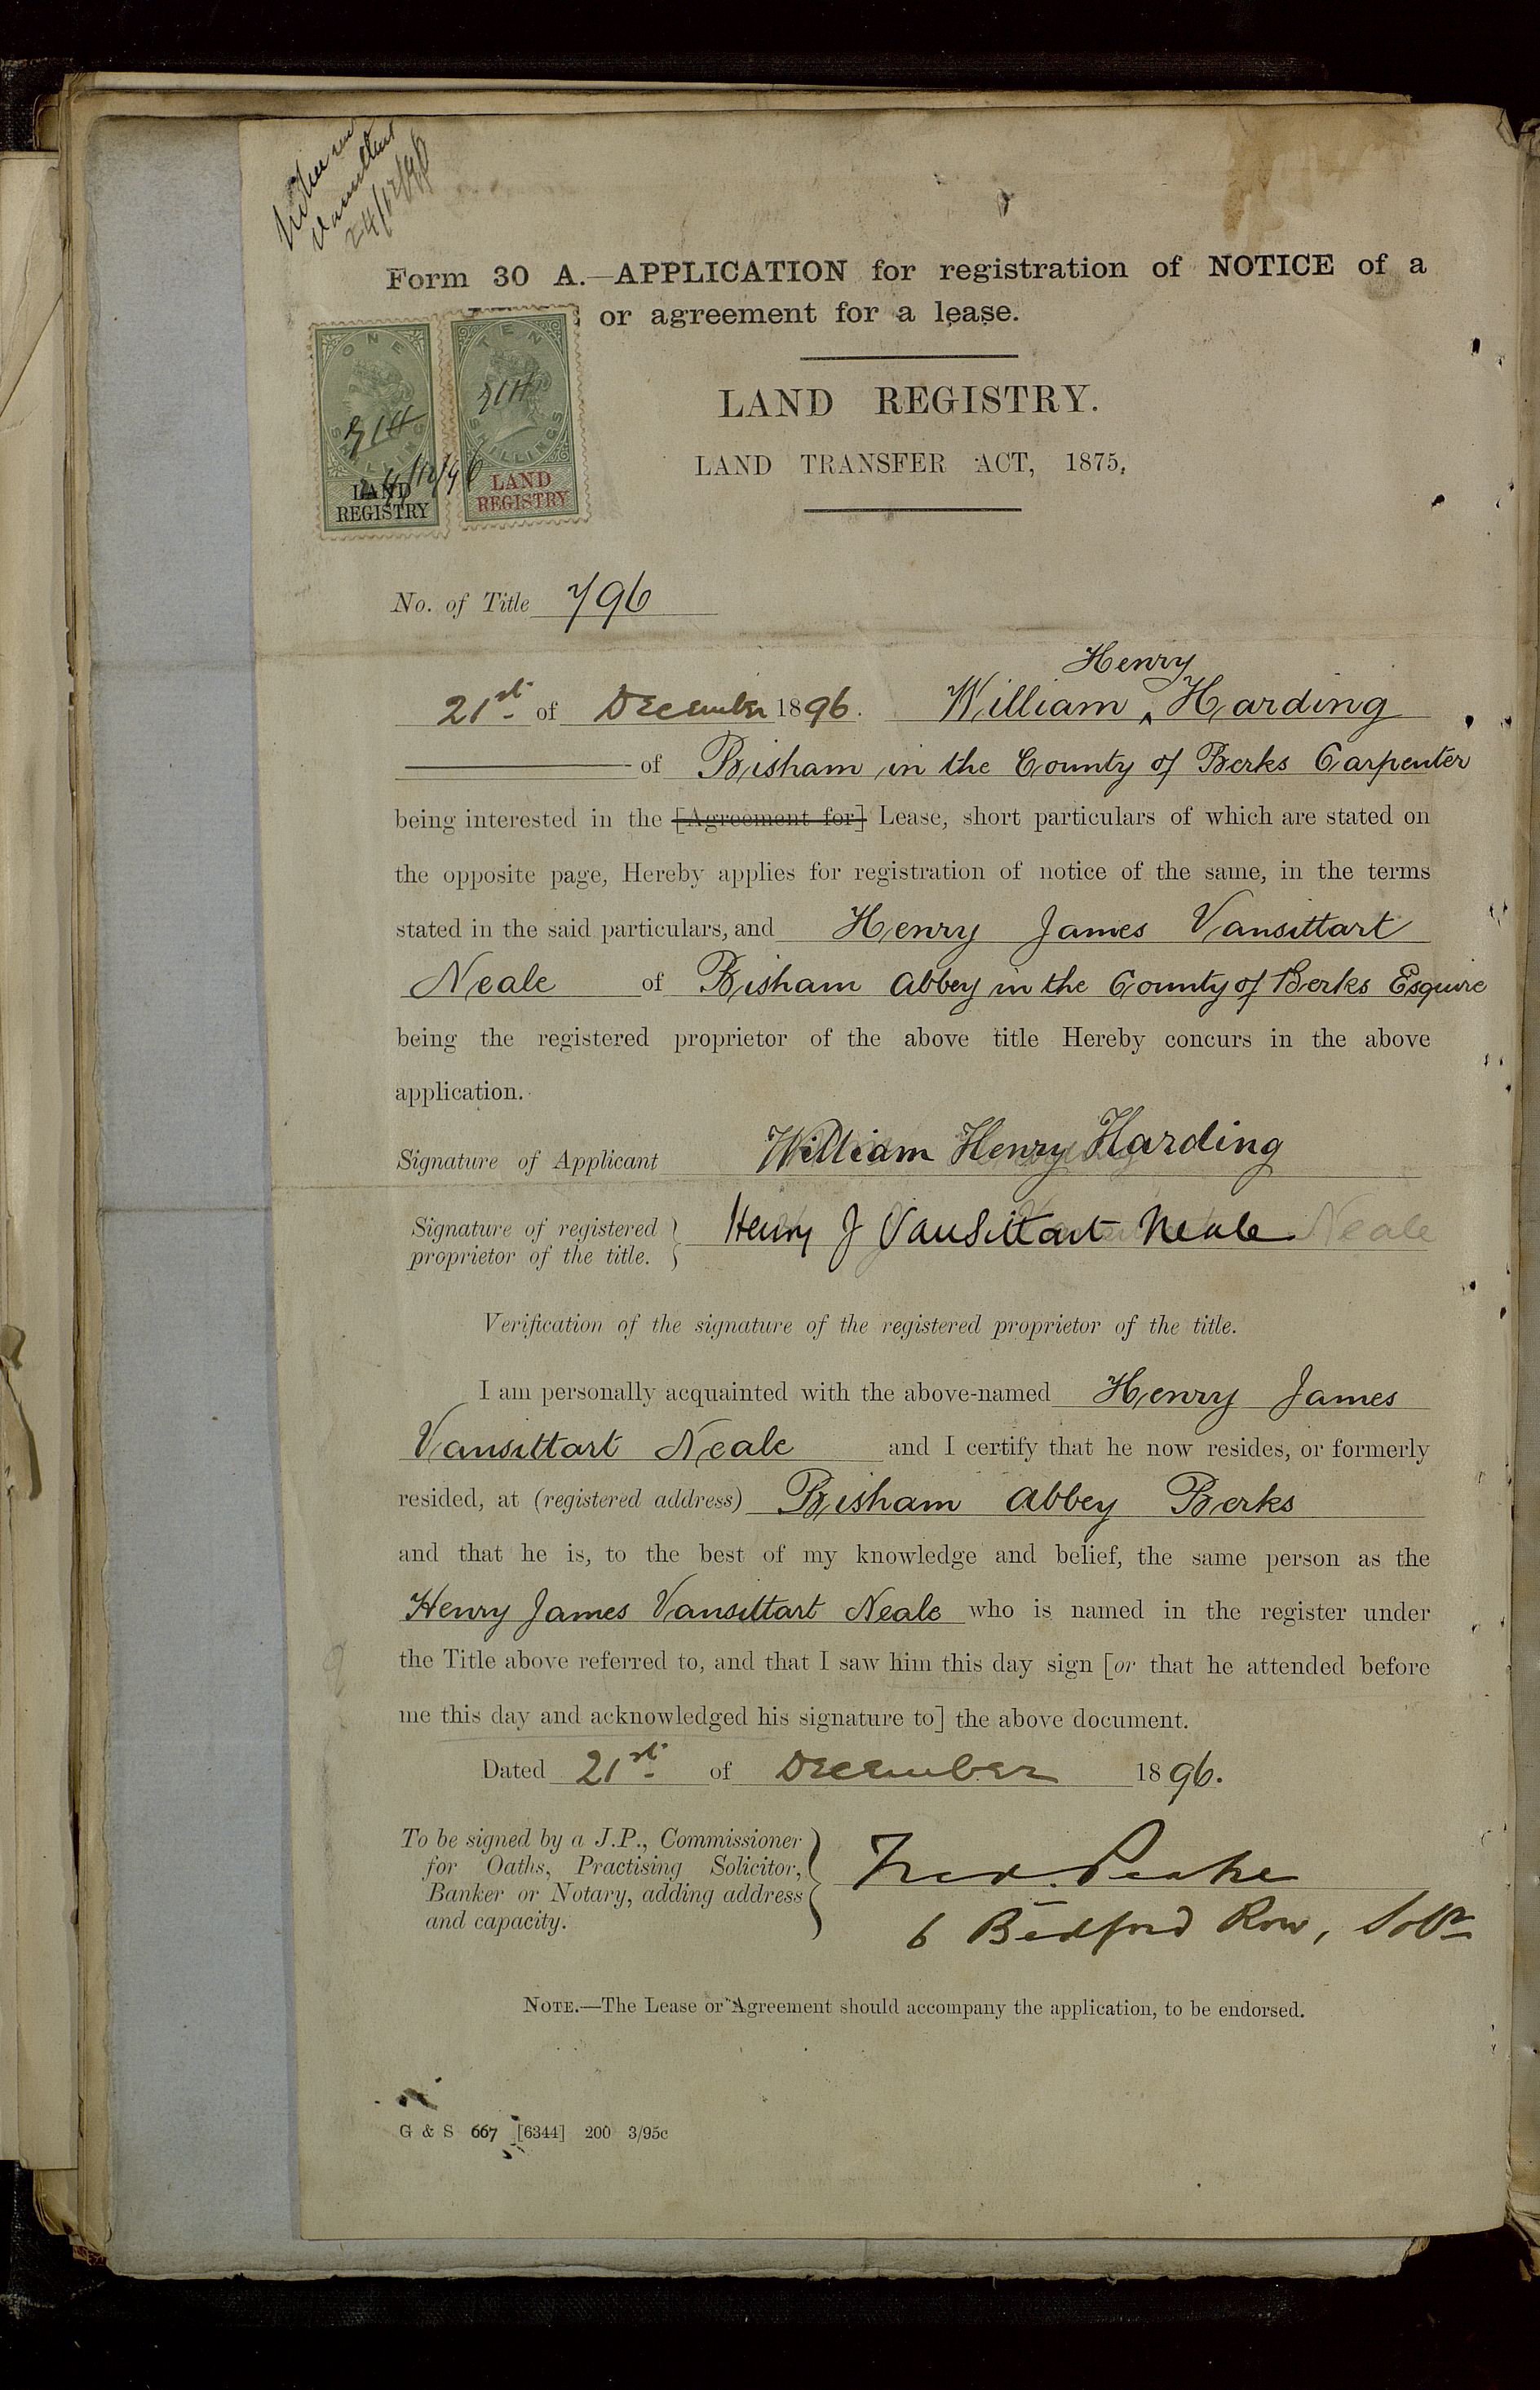 24/12/96
Form 30 A.—APPLICATION for registration of NOTICE of a
or agreement for a lease.
ONE SHILLING
LAND
REGISTRY
TEN SHILLINGS
LAND
REGISTRY
24/12/96
LAND REGISTRY.
LAND TRANSFER ACT, 1875.
No. of Title 796
Henry
21st of December 1896. William ‸ Harding
of Bisham in the County of Berks Carpenter
being interested in the [Agreement for] Lease, short particulars of which are stated on
the opposite page, Hereby applies for registration of notice of the same, in the terms
stated in the said particulars, and Henry James Vansittart
Neale of Bisham Abbey in the County of Berks Esquire
being the registered proprietor of the above title Hereby concurs in the above
application.
Signature of Applicant William Henry Harding
Signature of registered
proprietor of the title. } Henry J Vansittart Neale Neale
Verification of the signature of the registered proprietor of the title.
I am personally acquainted with the above-named Henry James
Vansittart Neale and I certify that he now resides, or formerly
resided, at (registered address) Bisham Abbey Berks
and that he is, to the best of my knowledge and belief, the same person as the
Henry James Vansittart Neale who is named in the register under
the Title above referred to, and that I saw him this day sign [or that he attended before
me this day and acknowledged his signature to] the above document.
Dated 21st of December 1896.
To be signed by a J.P., Commissioner
for Oaths, Practising Solicitor,
Banker or Notary, adding address
and capacity.
Fred. Peake
6 Bedford Row, Solr
NOTE.—The Lease or Agreement should accompany the application, to be endorsed.
G & S 667 [6344] 200 3/95c